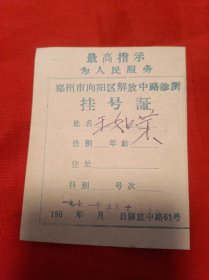 最高指示
为人民服务
郑州市向阳区解放中路诊所
挂号証
姓名
性别 年龄
住址
科别 号次
一九七一年三月十
196 年 月 日解放中路61号